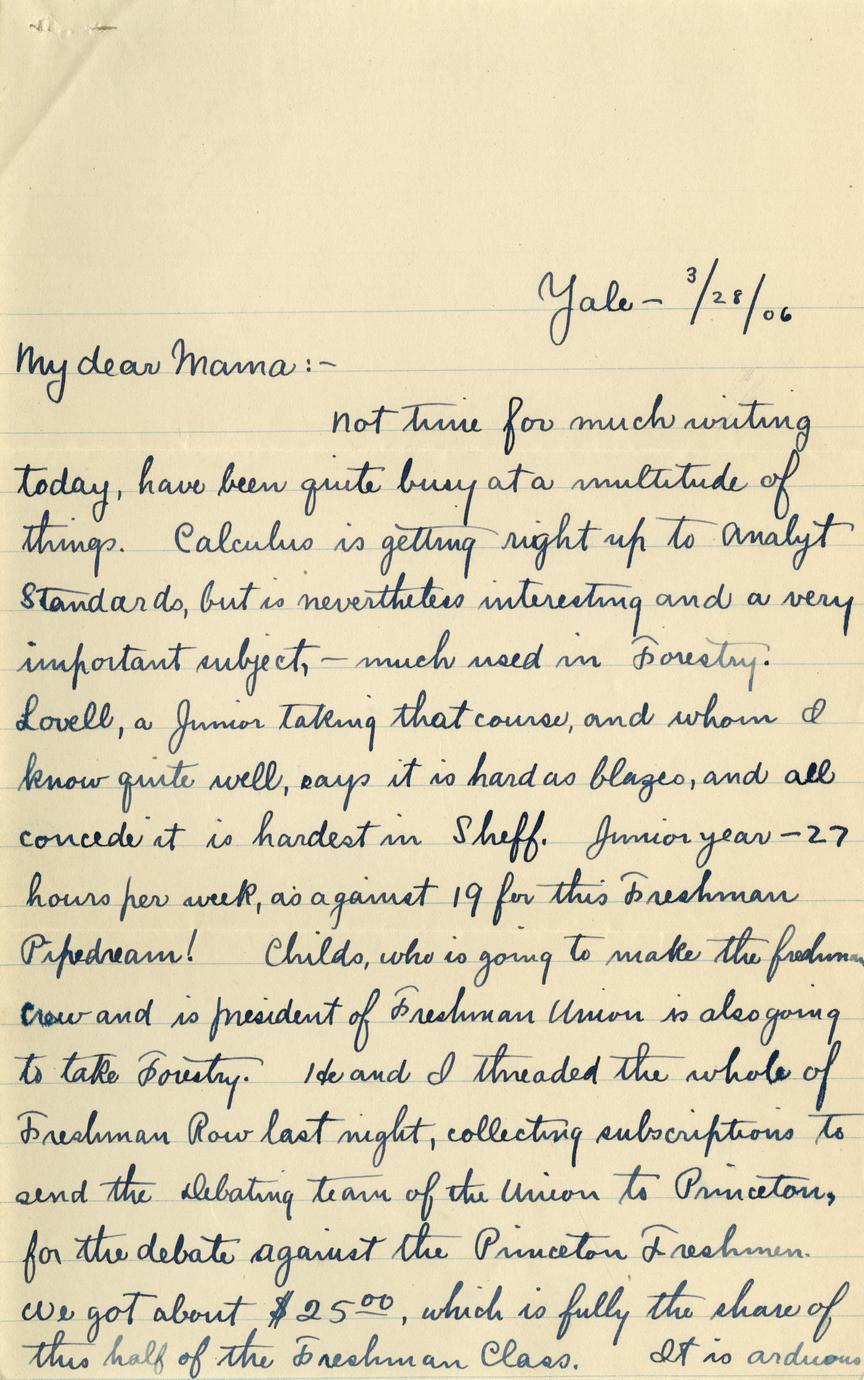 Yale - 3/28/06
My dear Mama:-
Not time for much writing
today, have been quite busy at a multitude of
things. Calculus is getting right up to Analyt
Standards, but is nevertheless interesting and a very
important subject, - much used in Forestry.
Lovell, a Junior taking that course, and whom I
know quite well, says it is hard as blazes, and all
concede it is hardest in Sheff. Junior year - 27
hours per week, as against 19 for this Freshman
Pipedream! Childs, who is going to make the freshman
crew and is president of Freshman Union is also going
to take Forestry. He and I threaded the whole of
Freshman Row last night, collecting subscriptions to
send the Debating team of the Union to Princeton,
for the debate against the Princeton Freshmen.
We got about $2500, which is fully the share of
this half of the Freshman Class. It is arduous